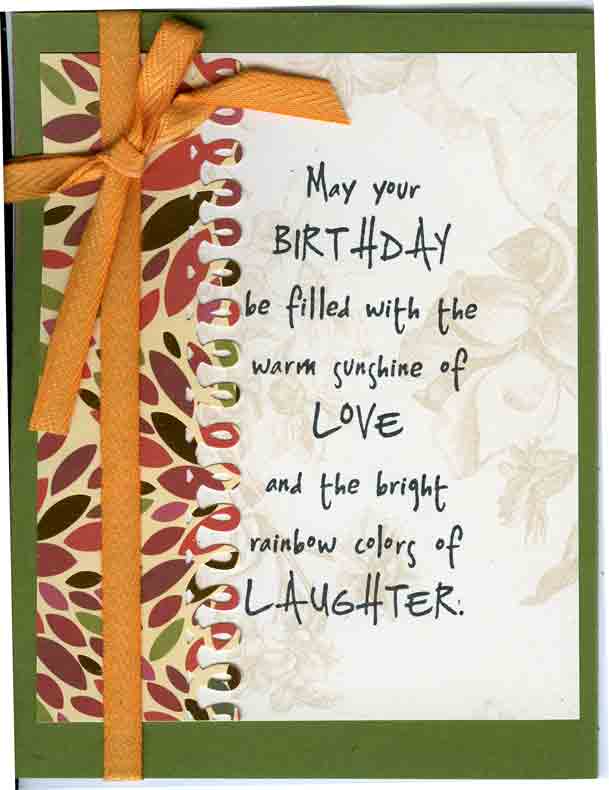 May your
BIRTHDAY
be filled with the
warm sunshine of
LOVE
and the bright
rainbow colors of
LAUGHTER.